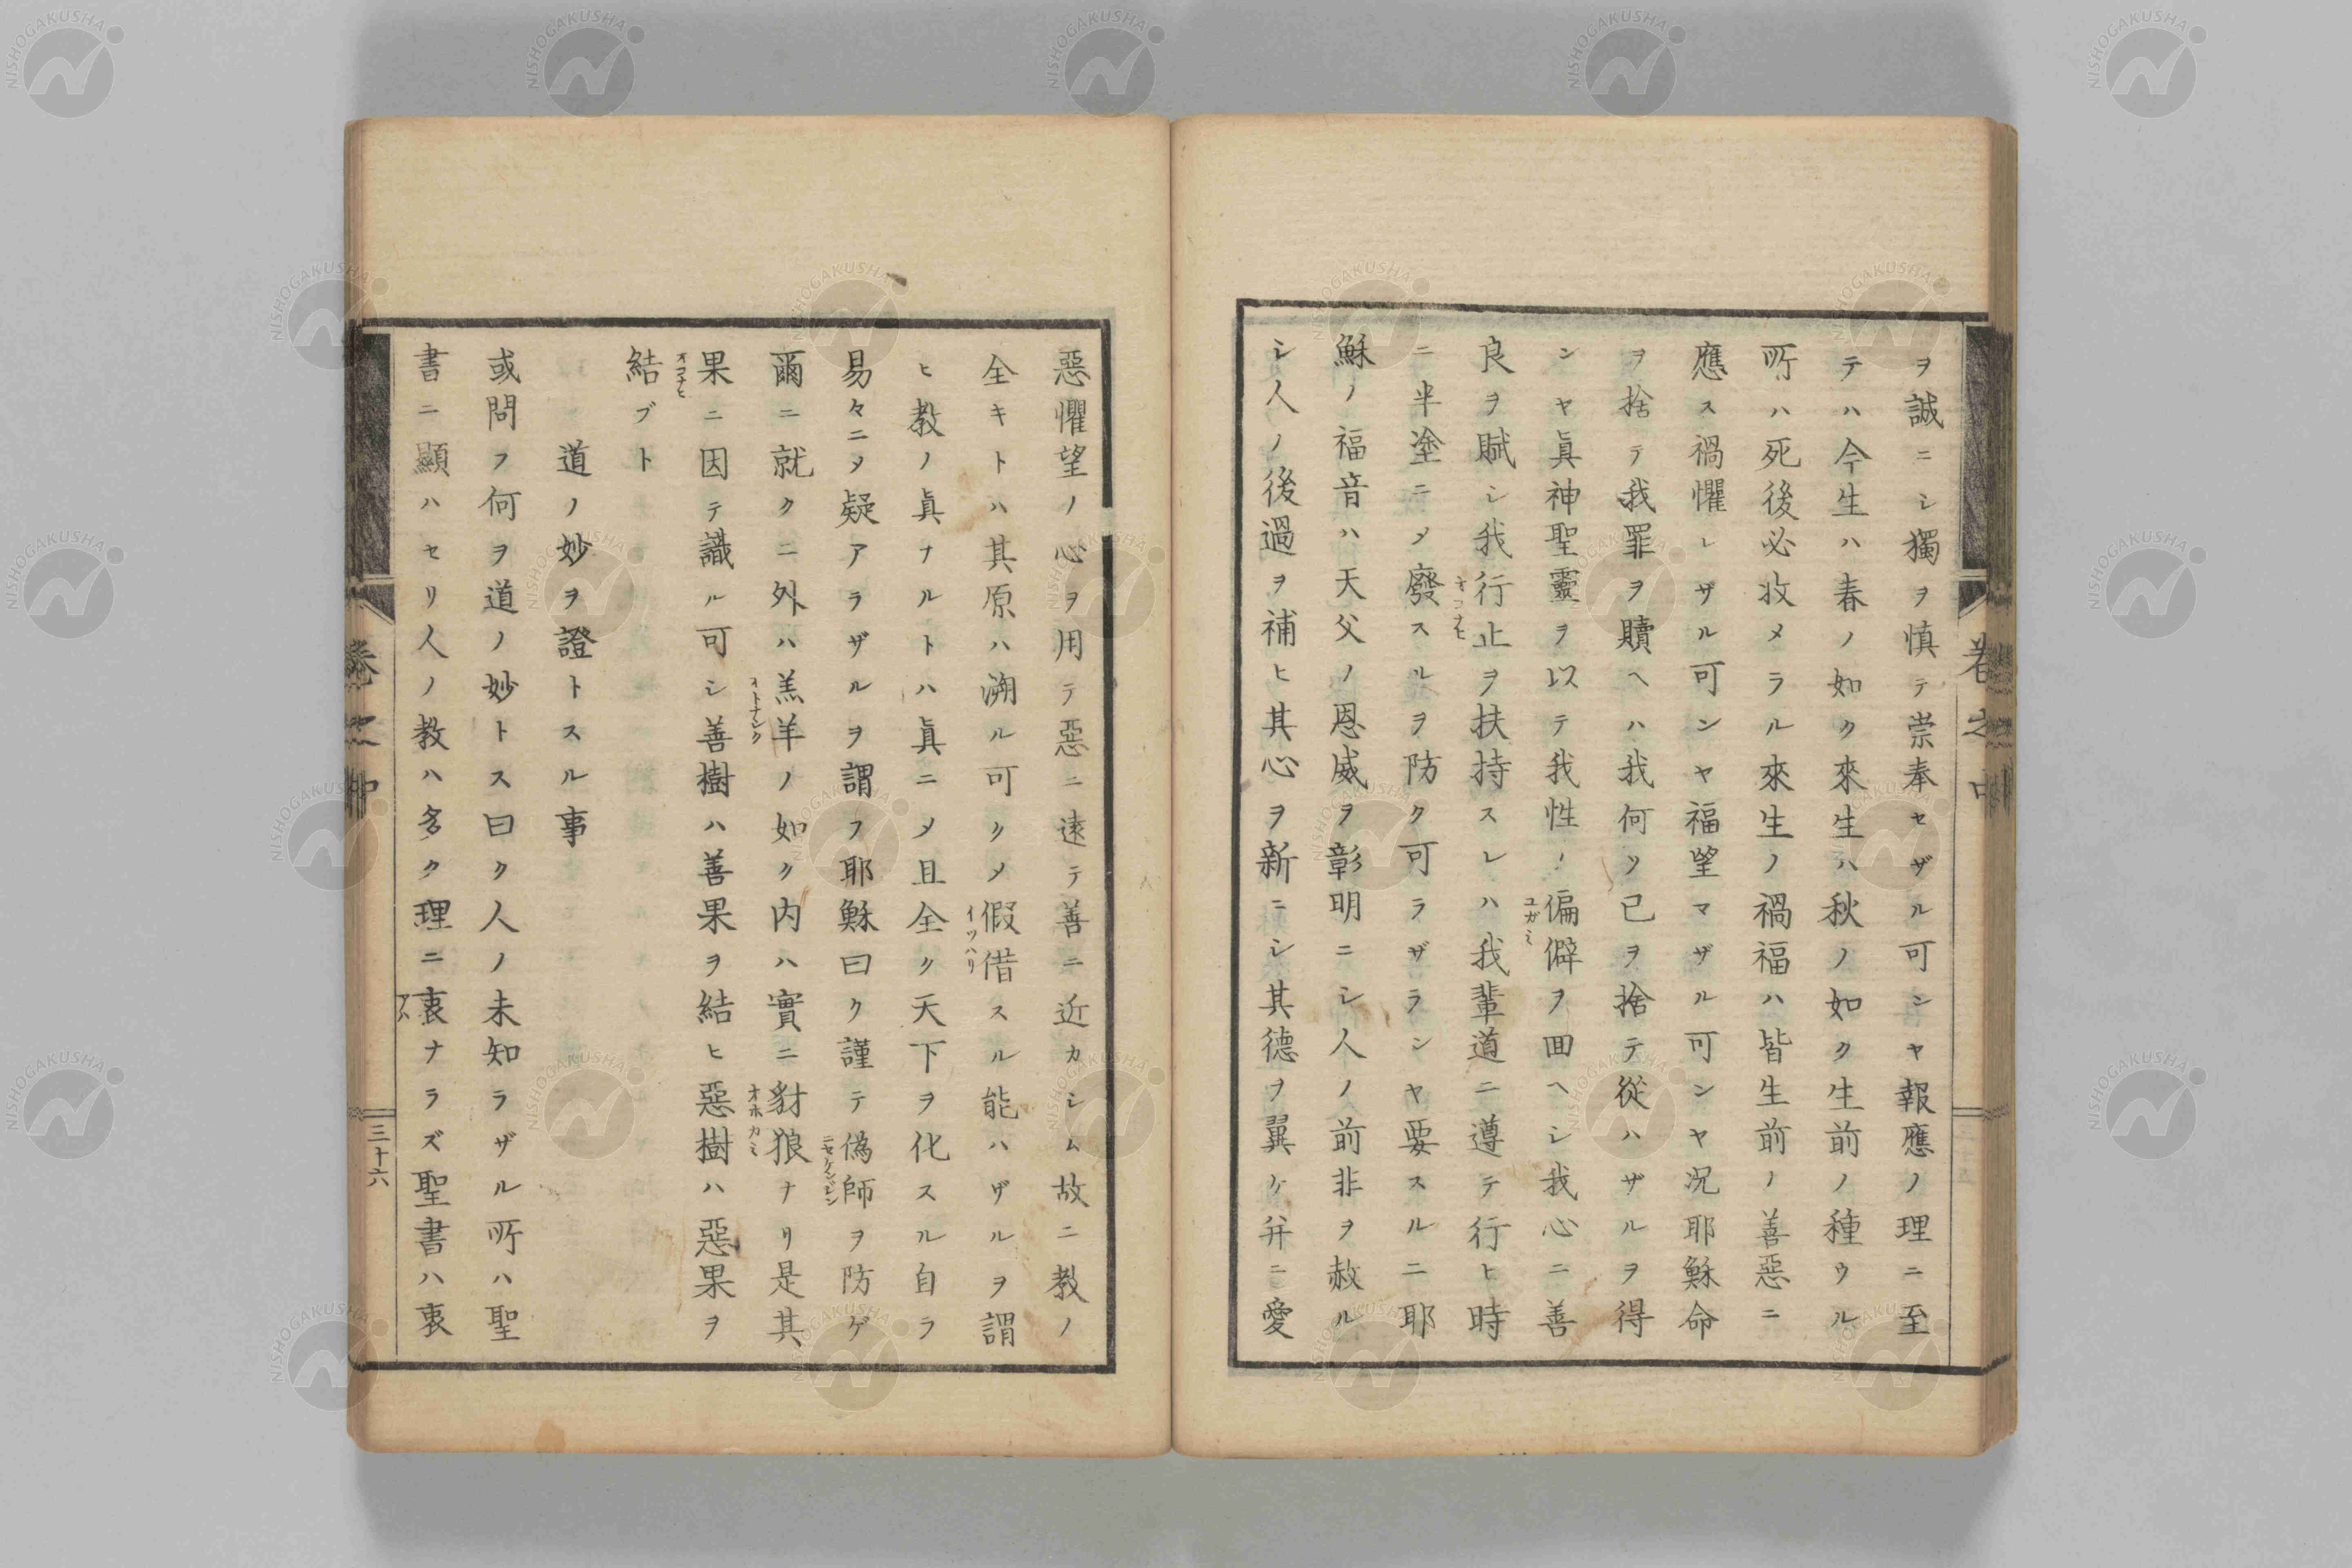 ヲ誠ニシ獨ヲ慎テ崇奉セザル可ンヤ報應ノ理ニ至
テハ今生ハ春ノ如ク來生ハ秋ノ如ク生前ノ種ウル
所ハ死後必收メラル來生ノ禍福ハ皆生前ノ善惡ニ
應ス禍懼レザル可ンヤ福望マザル可ンヤ況耶穌命
ヲ捨テ我罪ヲ贖ヘハ我何ソ已ヲ捨テ從ハザルヲ得
ンヤ眞神聖靈ヲ以テ我性ノ偏僻ヲ囬ヘシ我心ニ善
ユガミ
良ヲ賦シ我行止ヲ扶持スレハ我輩道ニ遵テ行ヒ時
オコナヒ
ニ半塗ニメ廢スルヲ防ク可ラザランヤ要スルニ耶
穌ノ福音ハ天父ノ恩威ヲ彰明ニシ人ノ前非ヲ赦ル
シ人ノ後過ヲ補ヒ其心ヲ新ニシ其德ヲ翼ケ并ニ愛
卷之中
惡懼望ノ心ヲ用テ惡ニ遠テ善ニ近カシム故ニ教ノ
全キトハ其原ハ溯ル可クメ假借スル能ハザルヲ謂
イツハリ
ヒ教ノ眞ナルトハ眞ニメ且全ク天下ヲ化スル自ラ
易々ニヲ疑アラザルヲ謂フ耶穌曰ク謹テ偽師ヲ防ゲ
爾ニ就クニ外ハ羔羊ノ如ク内ハ實ニ豺狼ナリ是其
オトナシク
オホカミ
果ニ因テ識ル可シ善樹ハ善果ヲ結ヒ惡樹ハ惡果ヲ
オコナヒ
結ブト
道ノ妙ヲ證トスル事
或問フ何ヲ道ノ妙トス曰ク人ノ未知ラザル所ハ聖
書ニ顯ハセリ人ノ教ハ多ク理ニ衷ナラズ聖書ハ衷
卷之中
三十六